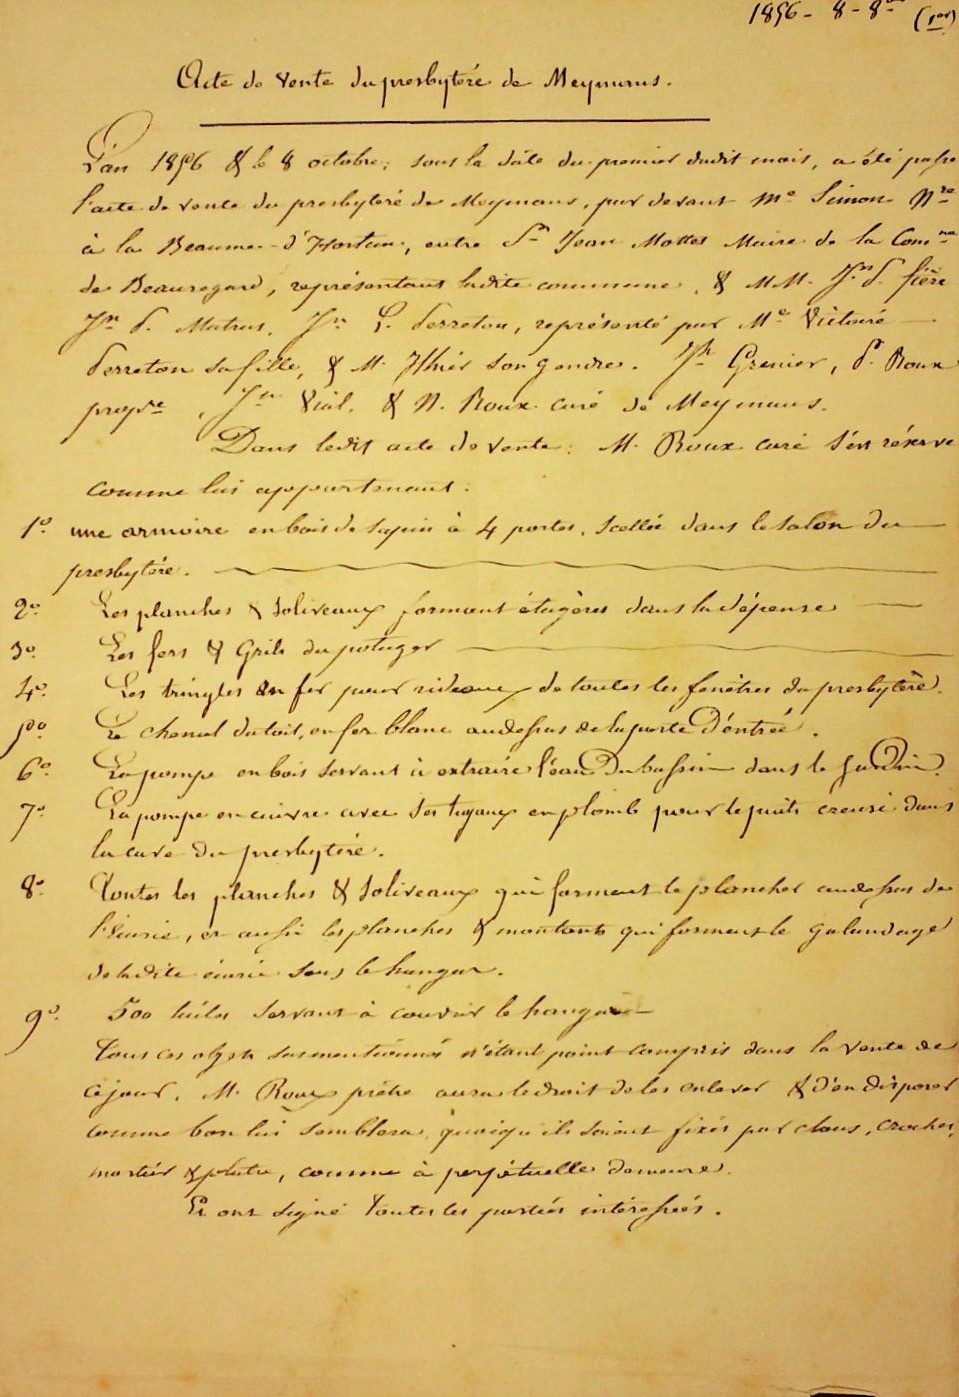 1856 - 8 - 8bre (1er)
Acte de vente du presbytère de Meymans.
L'an 1856 & le 8 octobre, sous la date du premier dudit mois, a été passé
l'acte de vente du presbytère de Meymans, par devant Me Simon Nre
à la Beaume-d'Hostun, entre Sr Jean Mottet Maire de la Comne
de Beauregard, représentant ladite commune, & M.M. Jn P. fière
Jn P. Matras, Jn L. Perreton, représenté par Me Victoire
Perreton sa fille, & M. Ithier son gendre. Jh Grenier, P. Roux
propre, Jn Vial, & N. Roux curé de Meymans.
Dans ledit acte de vente: M. Roux curé s'en réserve
comme lui appartenant:
1o. une armoire en bois de sapin à 4 portes, scellée dans le salon du
presbytère.
2o. Les planches & soliveaux formant étagères dans la dépense
3o. Les fers & Grils du potager
4o. Les tringles en fer pour rideaux de toutes les fenêtres du presbytère.
5o. Le cheneal du toit, en fer blanc au dessus de la porte D'entrée.
6o. La pompe en bois servant à extraire l'eau Du bassin dans le Jardin.
7o. La pompe en cuivre avec ses tuyaux en plomb pour le puits creusé dans
la cave du presbytère.
8o. Toutes les planches & soliveaux qui forment le plancher au dessus de
l'écurie, et aussi les planches & montants qui forment le galandage
de ladite écurie sous le hangar.
9o. 500 tuiles servant à couvrir le hangar
Tous ces objets susmentionnés n'étant point compris dans la vente de
ce jour, M. Roux prêtre aura le droit de les enlever & d'en disposer
comme bon lui semblera, quoiqu'ils soient fixés par clous, crochets,
mortier & plâtre, comme à perpétuelle demeure.
Et ont signé toutes les parties intéressées.